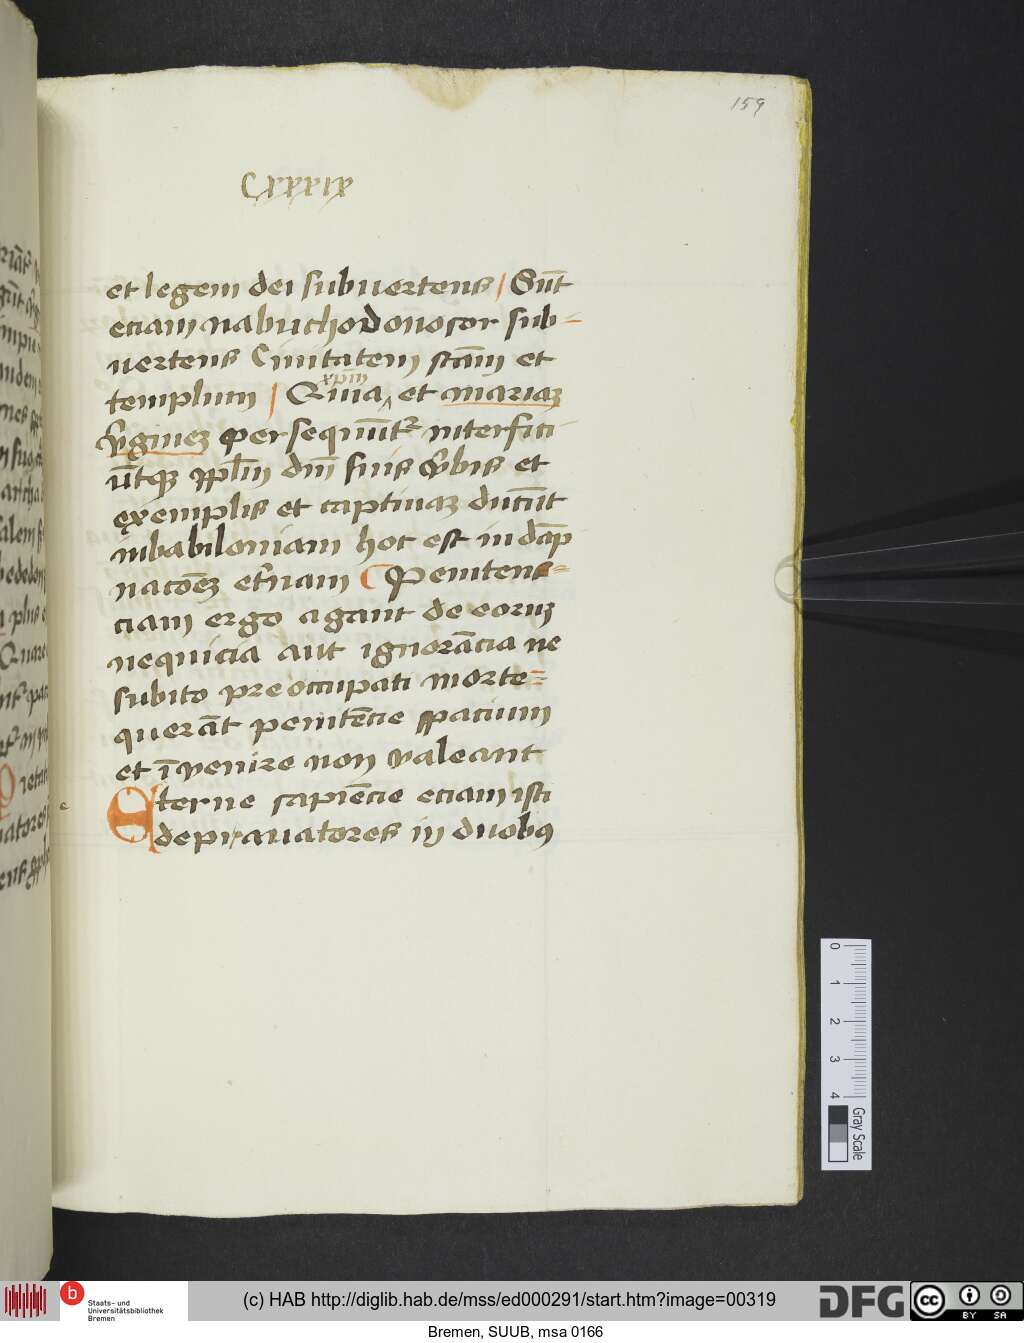 159
Cxxxix
et legem dei subuertens / Sūt
eciam nabuchodonosor sub-
uertens Ciuitatem sctām et
xpm̄
templum / Quia ^ et mariaꝫ
v̄gineꝫ persequūtr̄ interfici-
ūtqꝫ ppl̄m dn̄i suis v̄bis et
exemplis et captiuaꝫ ducūt
inbabiloniam hoc est in dāp-
nacōeꝫ et'nam Peniten=
ciam ergo agant de eorum
nequicia aut ignorācia ne
subito preoccupati morte=
querāt penitēcie spacium
et īvenire non valeant
Eterne sapiēcie eciam isti
e
deprauatores in duobꝰ
0 1 2 3 4
Gray Scale
b
Staats- und
Universitätsbibliothek
Bremen
(c) HAB http://diglib.hab.de/mss/ed000291/start.htm?image=00319
DFG
cc
BY SA
Bremen, SUUB, msa 0166